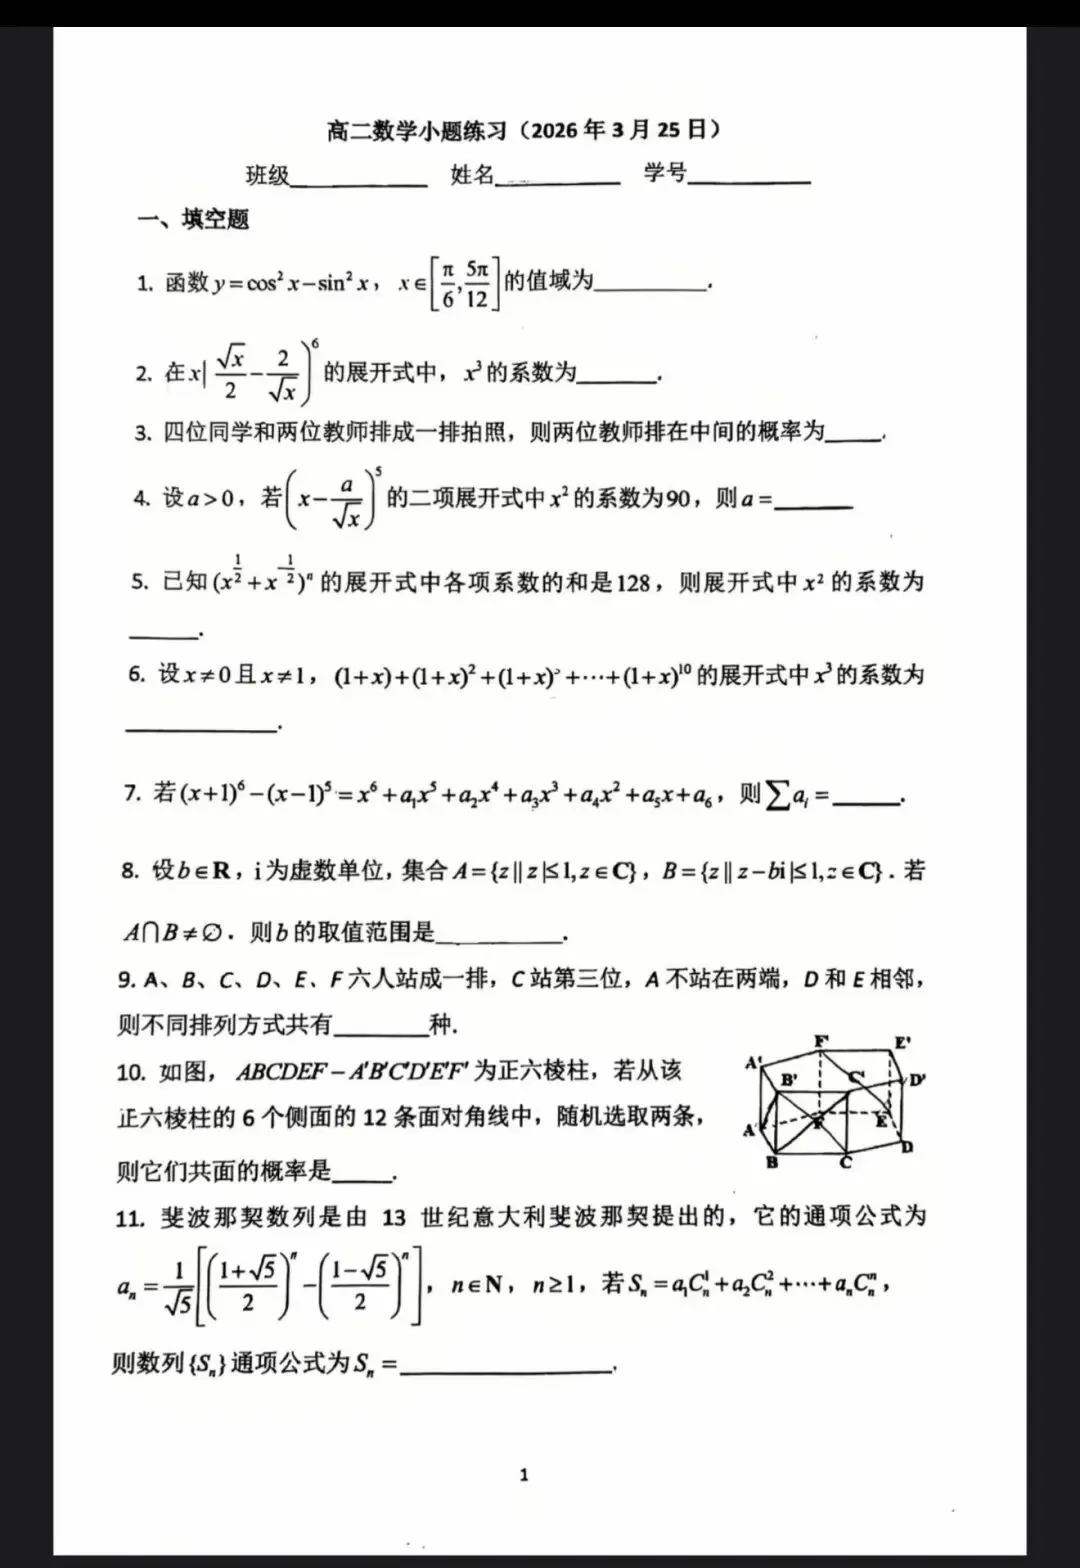 高二数学小题练习（2026 年 3 月 25 日）
班级____________ 姓名____________ 学号____________
一、填空题
1. 函数 y=cos² x−sin² x，x∈[π/6, 5π/12] 的值域为__________.
2. 在 x(√x/2 − 2/√x)⁶ 的展开式中，x³ 的系数为_______.
3. 四位同学和两位教师排成一排拍照，则两位教师排在中间的概率为_____.
4. 设 a>0，若 (x − a/√x)⁵ 的二项展开式中 x² 的系数为 90，则 a =_______
5. 已知 (x^(1/2)+x^(−1/2))ⁿ 的展开式中各项系数的和是 128，则展开式中 x² 的系数为
______.
6. 设 x≠0 且 x≠1，(1+x)+(1+x)²+(1+x)³+⋯+(1+x)¹⁰ 的展开式中 x³ 的系数为
_____________.
7. 若 (x+1)⁶−(x−1)⁵=x⁶+a₁x⁵+a₂x⁴+a₃x³+a₄x²+a₅x+a₆，则∑aᵢ =______.
8. 设 b∈R，i 为虚数单位，集合 A={z||z|≤1,z∈C}，B={z||z−bi|≤1,z∈C}．若
A∩B≠∅．则 b 的取值范围是___________.
9. A、B、C、D、E、F 六人站成一排，C 站第三位，A 不站在两端，D 和 E 相邻，
则不同排列方式共有________种.
10. 如图， ABCDEF−A'B'C'D'E'F' 为正六棱柱，若从该
正六棱柱的 6 个侧面的 12 条面对角线中，随机选取两条，
则它们共面的概率是_____.
F' E'
A' B' C' D'
A F E
B C D
11. 斐波那契数列是由 13 世纪意大利斐波那契提出的，它的通项公式为
aₙ = 1/√5[((1+√5)/2)ⁿ − ((1−√5)/2)ⁿ]，n∈N，n≥1，若 Sₙ=a₁Cₙ¹+a₂Cₙ²+⋯+aₙCₙⁿ，
则数列{Sₙ}通项公式为 Sₙ =__________________.
1